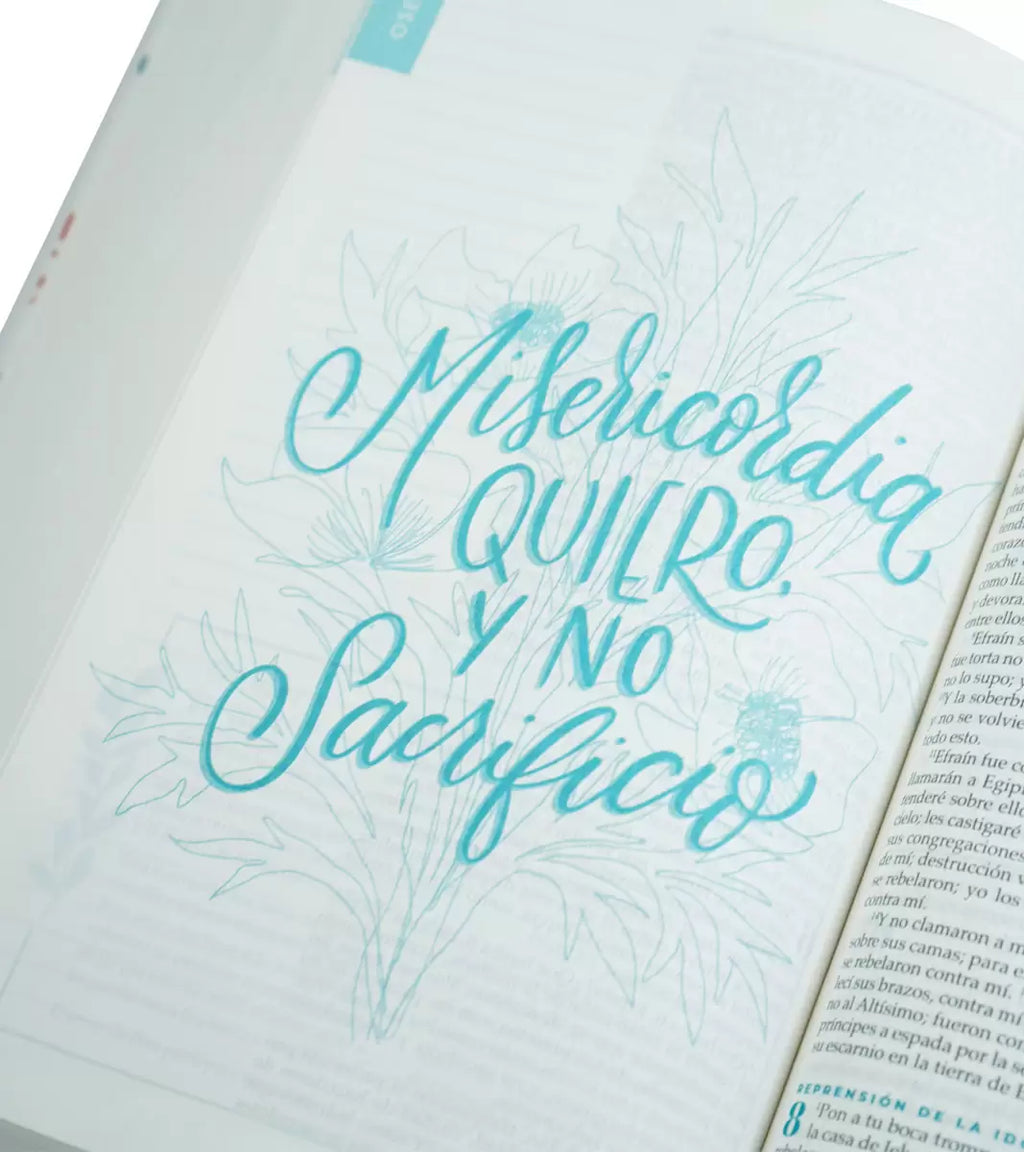 Misericordia
QUIERO,
Y NO
Sacrificio
noche
como
y devora
entre ellos
Efraín
fue torta no
no lo supo; y
Y la soberbi
y no se volvie
todo esto.
Efraín fue
llamarán a Egip
tenderé sobre ello
cielo; les castigaré
sus congregaciones
de mí; destrucción
se rebelaron; yo los
contra mí.
14Y no clamaron a
sobre sus camas; para
se rebelaron contra mí.
sus brazos, contra mí
no al Altísimo; fueron
príncipes a espada por la
su escarnio en la tierra de
REPRENSIÓN DE LA
8 1Pon a tu boca
la casa de